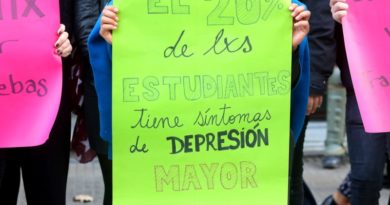 EL 20%
de lxs
ESTUDIANTES
tiene síntomas
de DEPRESIÓN
MAYOR